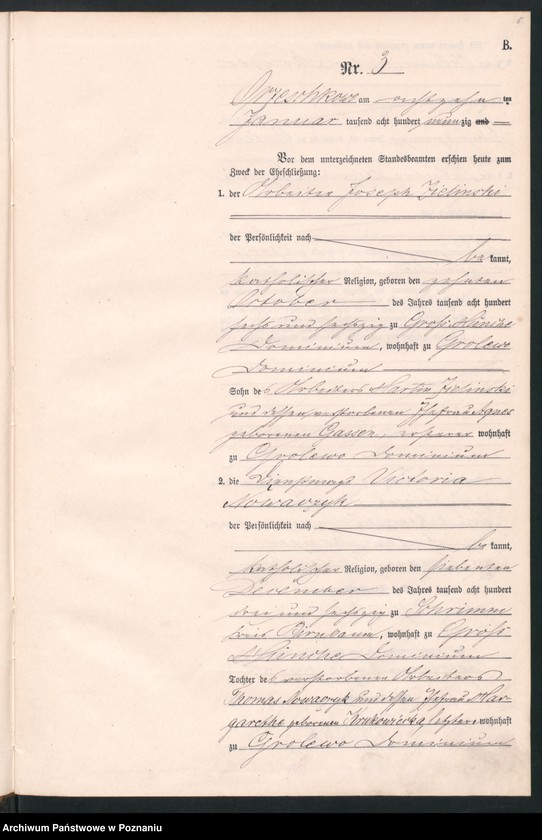 B.
Nr. 3
Orzeschkowo am achtzehn ten
Januar tausend acht hundert neunzig und
Vor dem unterzeichneten Standesbeamten erschien heute zum
Zweck der Eheschließung:
1. der Arbeiter Joseph Zielinski
der Persönlichkeit nach
be kannt,
katholischer Religion, geboren den zehnten
October des Jahres tausend acht hundert
sechs und sechzig zu Groß
Dominium, wohnhaft zu Grolewo
Dominium
Sohn des Arbeiters Martin Zielinski
und dessen verstorbenen Ehefrau Agnes
geborenen Gasser, ersterer wohnhaft
zu Grolewo Dominium
2. die Dienstmagd Victoria
Nowaczyk
der Persönlichkeit nach
be kannt,
katholischer Religion, geboren den siebenten
December des Jahres tausend acht hundert
drei und sechzig zu
Kreis Birnbaum, wohnhaft zu Groß
Dominium
Tochter des verstorbenen Arbeiters
Thomas Nowaczyk und dessen Ehefrau Mar-
garethe geborenen letztere wohnhaft
zu Grolewo Dominium
Archiwum Państwowe w Poznaniu